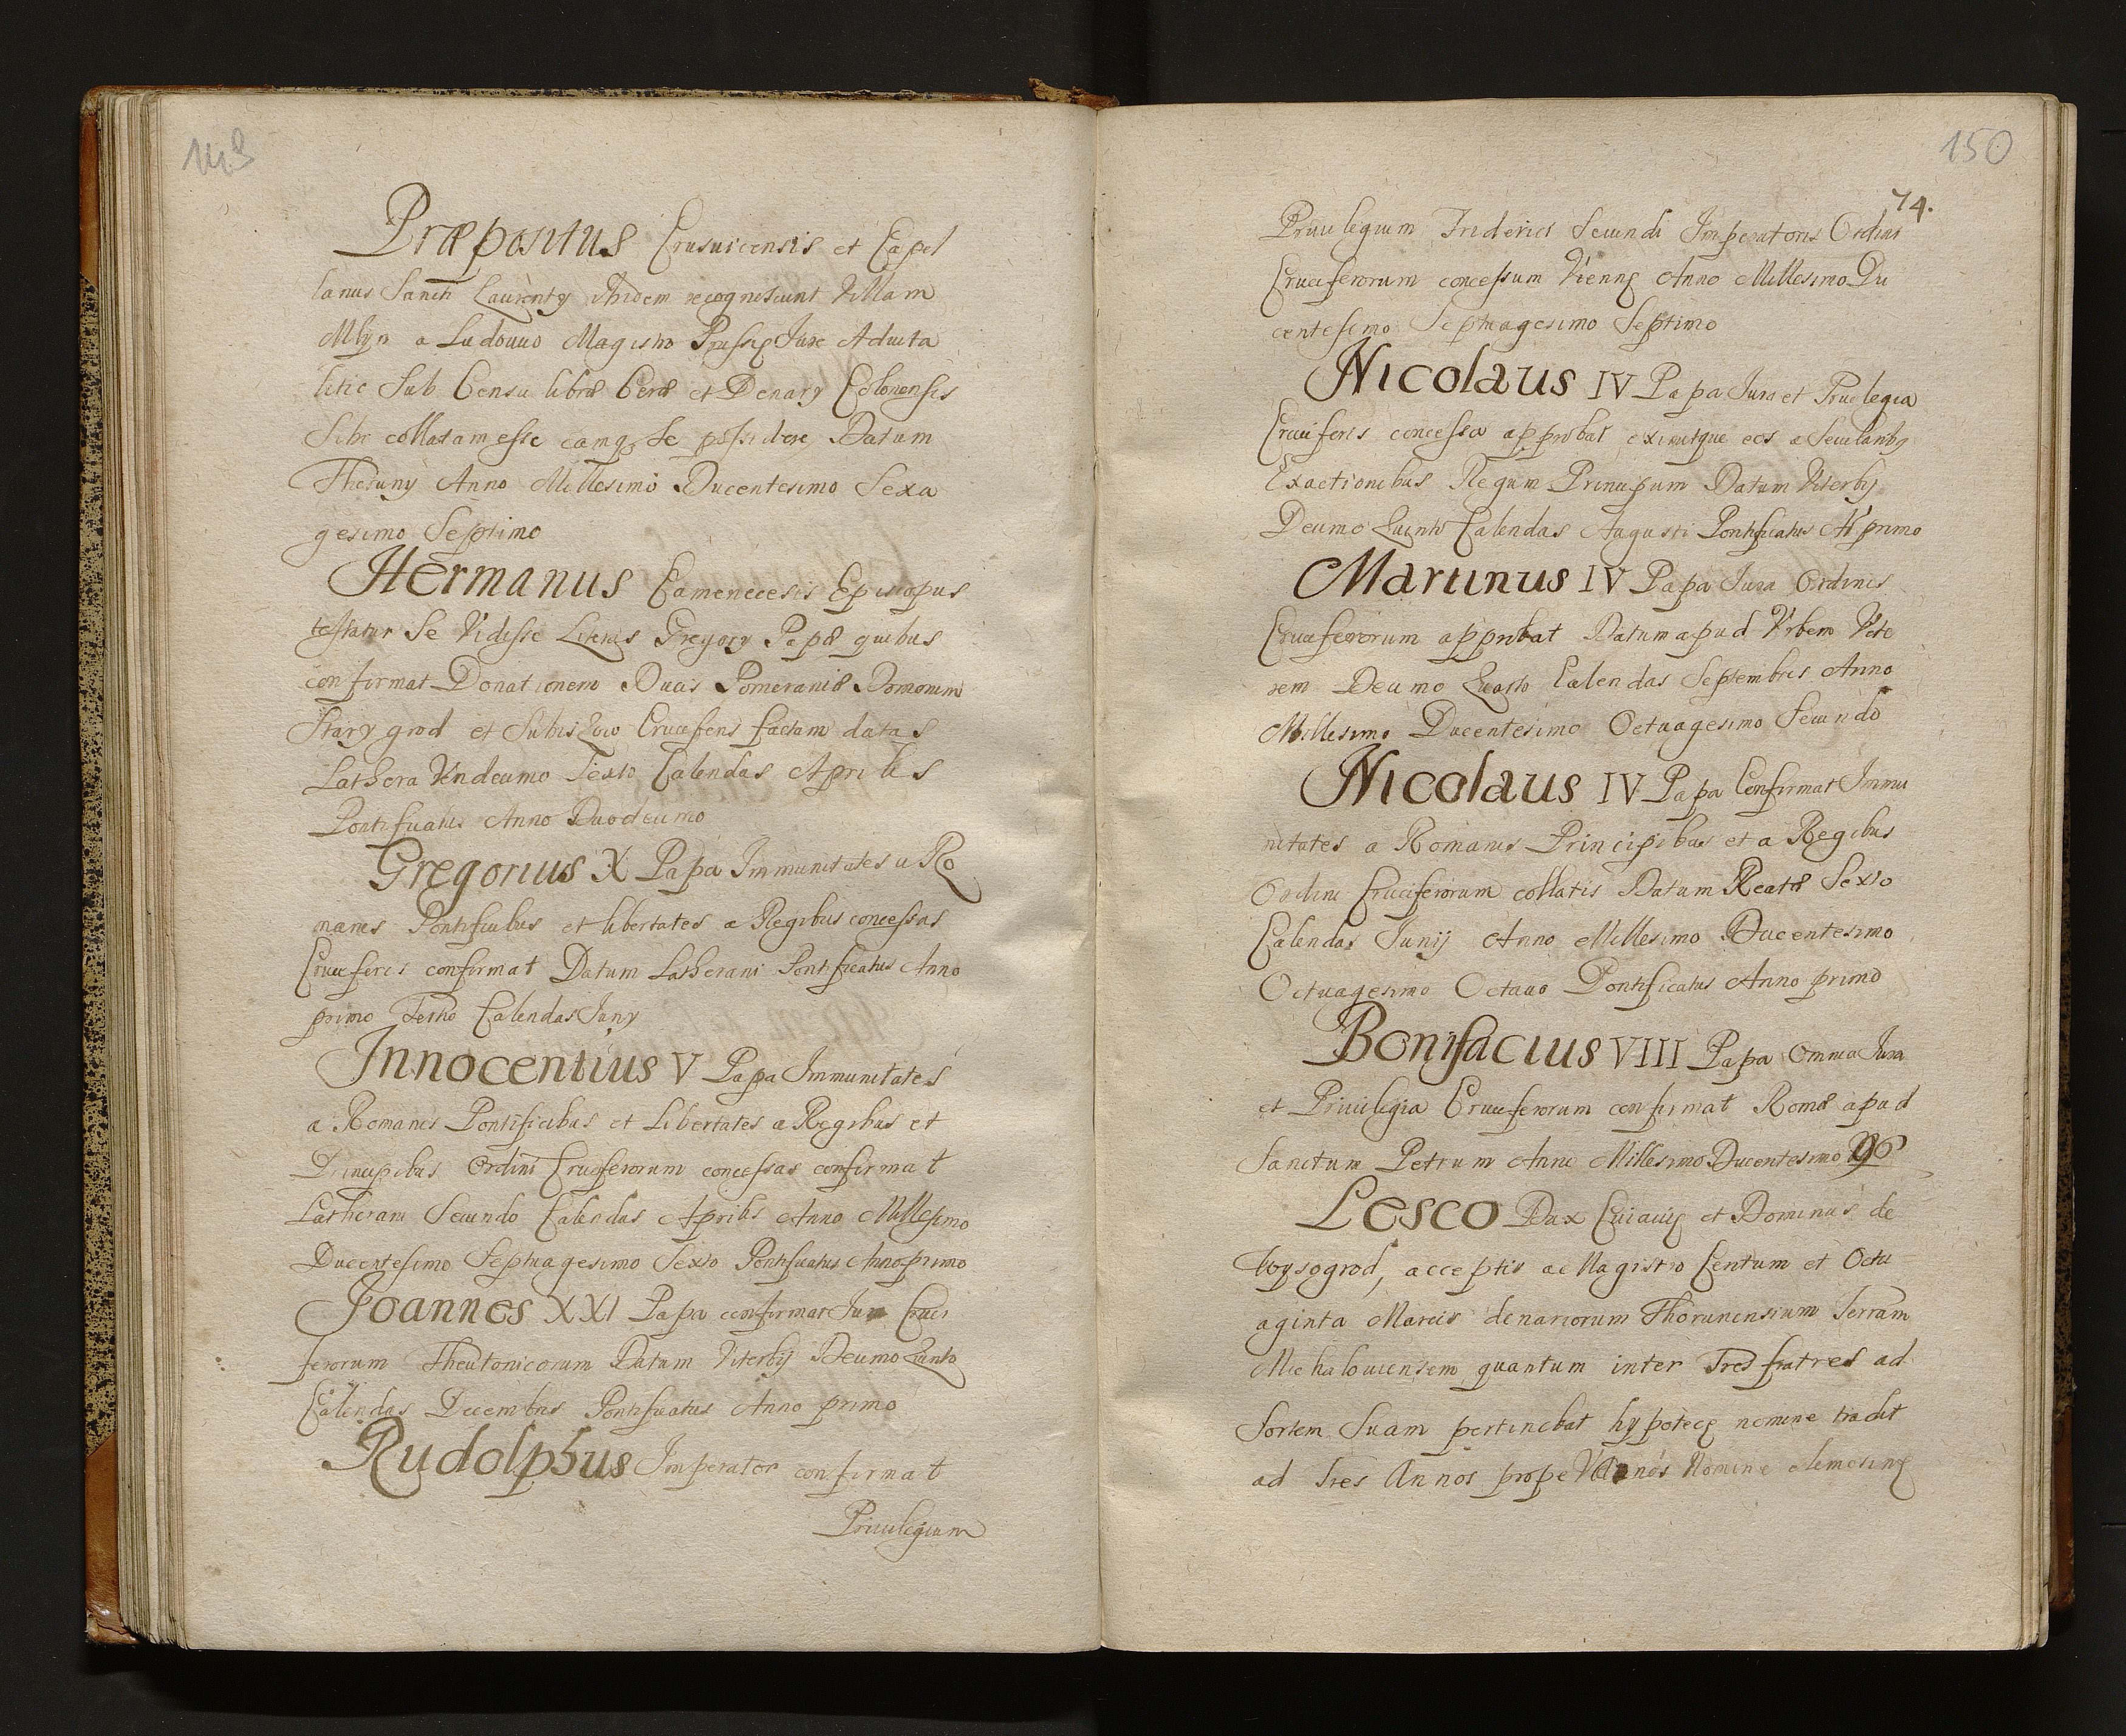 149
Præpositus Crusuicensis et Capel
lanus Sancti Laurenty Ibidem recognoscunt Villam
Mlyn a Ludouuo Magistro Prussię Jure Aduita
litie Sub Censu libræ Ceræ et Denary Colonensis
Sibi collatam esse eamq. Se possidere Datum
Thoruny Anno Millesimo Ducentesimo Sexa
gesimo Septimo
Hermanus Camenecesis Episcopus
testatur Se Vidisse Literas Gregory Papæ quibus
confirmat Donationem Ducis Pomeraniæ Domorum
Starygrod et Cruciferis factam datas
Lathera Vndecimo Sexto Calendas Aprilis
Pontificatus Anno Duodecimo
Gregorius X Papa Immunitates a Ro
manis Pontificibus et libertates a Regibus concessas
Cruciferis confirmat Datum Latherani Pontificatus Anno
primo Tertio Calendas Juny
Innocentius V Papa Immunitates
a Romanis Pontificibus et Libertates a Regibus et
Principibus Ordini Cruciferorum concessas confirmat
Latherani Secundo Calendas Aprilis Anno Millesimo
Ducentesimo Septuagesimo Sexto Pontificatus Anno primo
Joannes XXI Papa confirmat Jura Cruci
ferorum Theutonicorum Datum Viterbij Decimo Quinto
Calendas Decembris Pontificatus Anno primo
Rudolphus Imperator confirmat
Priuilegium
150
74.
Priuilegium Friderici Secundi Imperatoris Ordini
Cruciferorum concessum Viennę Anno Millesimo Du
centesimo Septuagesimo Septimo
Nicolaus IV Papa Jura et Priuilegia
Cruciferis concessa approbat eximitque eos a Secularibq
Exactionibus Regum Principum Datum Viterbij
Decimo Quinto Calendas Augusti Pontificatus A° primo
Martinus IV Papa Jura Ordinis
Cruciferorum approbat Datum apud Vrbem Vete
rem Decimo Quarto Calendas Septembris Anno
Millesimo Ducentesimo Octuagesimo Secundo
Nicolaus IV Papa Confirmat Immu
nitates a Romanis Principibus et a Regibus
Ordini Cruciferorum collatis Datum Reatæ Sexto
Calendas Junij Anno Millesimo Ducentesimo
Octuagesimo Octauo Pontificatus Anno primo
Bonifacius VIII Papa Omnia Jura
et Priuilegia Cruciferorum confirmat Romæ apud
Sanctum Petrum Anno Millesimo Ducentesimo 96
Lesco Dux Cuiauię et Dominus de
Wysogrod, acceptis a Magistro Centum et Octu
aginta Marcis denariorum Thorunensium Terram
Michalouiensem quantum inter Tres fratres ad
Sortem Suam pertinebat hypotecę nomine tradit
ad Tres Annos prope Nomine elemosinę